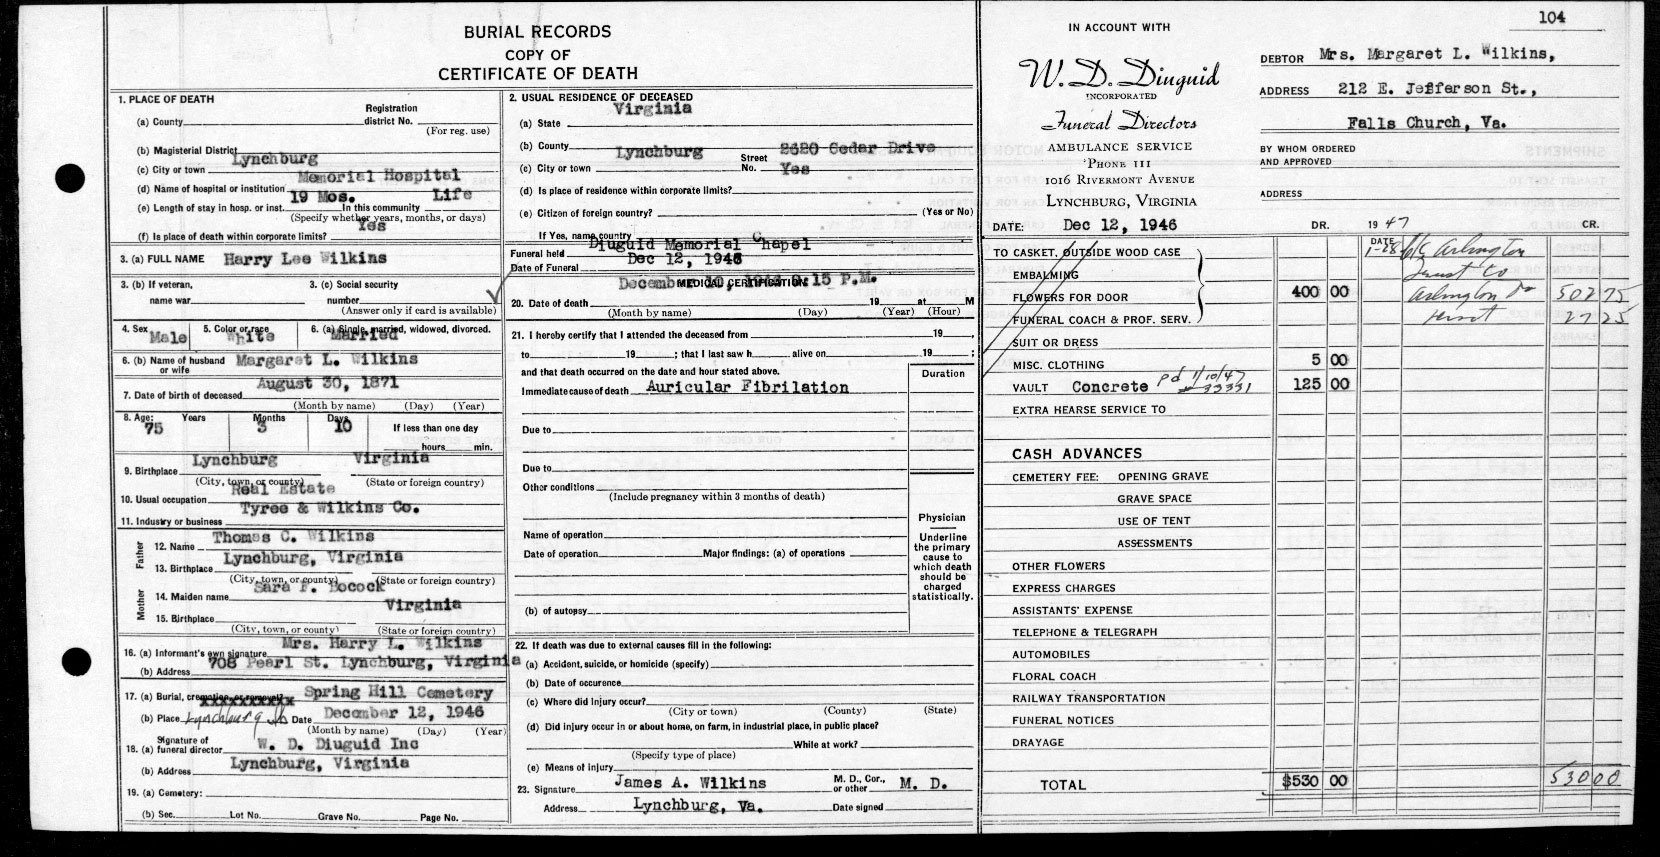 BURIAL RECORDS
COPY OF
CERTIFICATE OF DEATH
1. PLACE OF DEATH
(a) County
Registration district No.
(For reg. use)
(b) Magisterial District
(c) City or town Lynchburg
(d) Name of hospital or institution Memorial Hospital
(e) Length of stay in hosp. or inst. 19 Mos. In this community Life
(Specify whether years, months, or days)
(f) Is place of death within corporate limits? Yes
3. (a) FULL NAME Harry Lee Wilkins
3. (b) If veteran, name war
3. (c) Social security number
(Answer only if card is available)
4. Sex Male
5. Color or race White
6. (a) Single, married, widowed, divorced. Married
6. (b) Name of husband or wife Margaret L. Wilkins
7. Date of birth of deceased August 30, 1871
(Month by name) (Day) (Year)
8. Age: Years 75 Months 3 Days 10 If less than one day hours min.
9. Birthplace Lynchburg Virginia
(City, town, or county) (State or foreign country)
10. Usual occupation Real Estate
11. Industry or business Tyree & Wilkins Co.
Father
12. Name Thomas C. Wilkins
13. Birthplace Lynchburg, Virginia
(City, town, or county) (State or foreign country)
Mother
14. Maiden name Sara F. Bocock
15. Birthplace Virginia
(City, town, or county) (State or foreign country)
16. (a) Informant's own signature Mrs. Harry L. Wilkins
(b) Address 708 Pearl St. Lynchburg, Virginia
17. (a) Burial, cremation or removal? Spring Hill Cemetery
(b) Place Lynchburg Va Date December 12, 1946
(Month by name) (Day) (Year)
18. (a) Signature of funeral director W. D. Diuguid Inc
(b) Address Lynchburg, Virginia
19. (a) Cemetery:
(b) Sec. Lot No. Grave No. Page No.
2. USUAL RESIDENCE OF DECEASED
(a) State Virginia
(b) County
(c) City or town Lynchburg Street No. 2620 Cedar Drive
(d) Is place of residence within corporate limits? Yes
(e) Citizen of foreign country? (Yes or No)
If Yes, name country
Funeral held Diuguid Memorial Chapel
Date of Funeral Dec 12, 1946
MEDICAL CERTIFICATION
20. Date of death December 10, 1946 9:15 P.M. 19 at M
(Month by name) (Day) (Year) (Hour)
21. I hereby certify that I attended the deceased from 19
to 19 ; that I last saw h alive on 19 ;
and that death occurred on the date and hour stated above.
Duration
Immediate cause of death Auricular Fibrilation
Due to
Due to
Other conditions
(Include pregnancy within 3 months of death)
Name of operation
Date of operation Major findings: (a) of operations
(b) of autopsy
Physician
Underline the primary cause to which death should be charged statistically.
22. If death was due to external causes fill in the following:
(a) Accident, suicide, or homicide (specify)
(b) Date of occurence
(c) Where did injury occur?
(City or town) (County) (State)
(d) Did injury occur in or about home, on farm, in industrial place, in public place?
While at work?
(Specify type of place)
(e) Means of injury
23. Signature James A. Wilkins M. D., Cor., or other M. D.
Address Lynchburg, Va. Date signed
104
IN ACCOUNT WITH
W. D. Diuguid
INCORPORATED
Funeral Directors
AMBULANCE SERVICE
PHONE 111
1016 RIVERMONT AVENUE
LYNCHBURG, VIRGINIA
DEBTOR Mrs. Margaret L. Wilkins,
ADDRESS 212 E. Jefferson St.,
Falls Church, Va.
BY WHOM ORDERED AND APPROVED
ADDRESS
DATE: Dec 12, 1946 DR. 1947 CR.
TO CASKET, OUTSIDE WOOD CASE
EMBALMING
FLOWERS FOR DOOR 400 00
FUNERAL COACH & PROF. SERV.
DATE
1-28 Arlington
Trust Co
Arlington Va 502 75
27 25
SUIT OR DRESS
MISC. CLOTHING 5 00
VAULT Concrete Pd 1/10/47 # 33331 125 00
EXTRA HEARSE SERVICE TO
CASH ADVANCES
CEMETERY FEE: OPENING GRAVE
GRAVE SPACE
USE OF TENT
ASSESSMENTS
OTHER FLOWERS
EXPRESS CHARGES
ASSISTANTS' EXPENSE
TELEPHONE & TELEGRAPH
AUTOMOBILES
FLORAL COACH
RAILWAY TRANSPORTATION
FUNERAL NOTICES
DRAYAGE
TOTAL $530 00 530 00